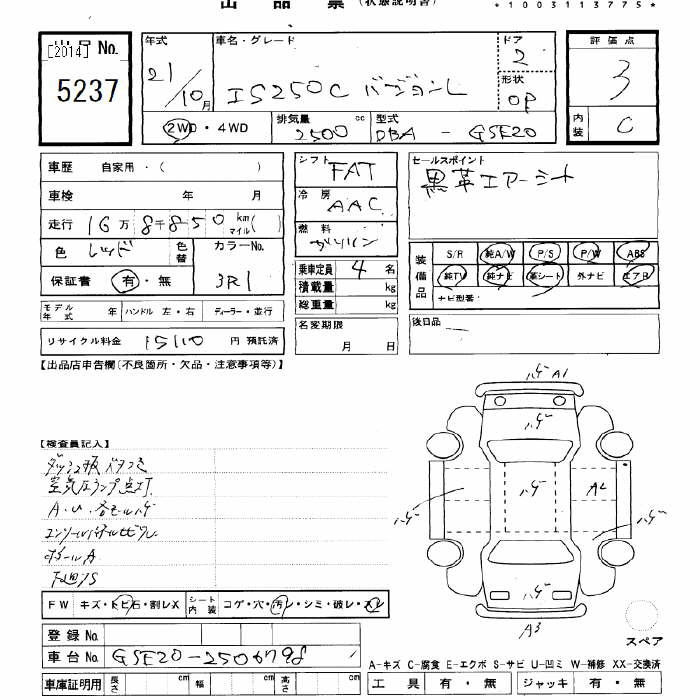 出品票 (状態説明書) *1003113775*
[2014] 出品 No. 5237
年式 21/10月
車名・グレード IS250C バージョンL
ドア 2
形状 OP
評価点 3
内装 C
2WD・4WD
排気量 2500 cc
型式 DBA - GSE20
車歴 自家用・( )
車検 年 月
走行 16万8千850 km マイル( )
色 レッド 色替
カラーNo. 3R1
保証書 有・無
モデル年式 年 ハンドル 左・右 ディーラー・並行
リサイクル料金 15110円 預託済
シフト FAT
冷房 AAC
燃料 ガソリン
乗車定員 4名
積載量 kg
総重量 kg
名変期限 月 日
セールスポイント
黒革エアーシート
装備品
S/R 純A/W P/S P/W ABS
純TV 純ナビ 革シート 外ナビ エアB
ナビ型番:
後日品 ―
【出品店申告欄(不良箇所・欠品・注意事項等)】
【検査員記入】
ダッシュ板ベタつき
空気圧ランプ点灯
A・U・各モールハゲ
下廻りS
FW キズ・トビ石・割レX
シート内装 コゲ・穴・汚レ・シミ・破レ・スレ
登録No.
車台No. GSE20-2506798
車庫証明用 長さ cm 幅 cm 高さ cm
ハゲ A1
ハゲ
ハゲ ハゲ A2 ハゲ
ハゲ
A3
スペア
A-キズ C-腐食 E-エクボ S-サビ U-凹ミ W-補修 XX-交換済
工具 有・無 ジャッキ 有・無